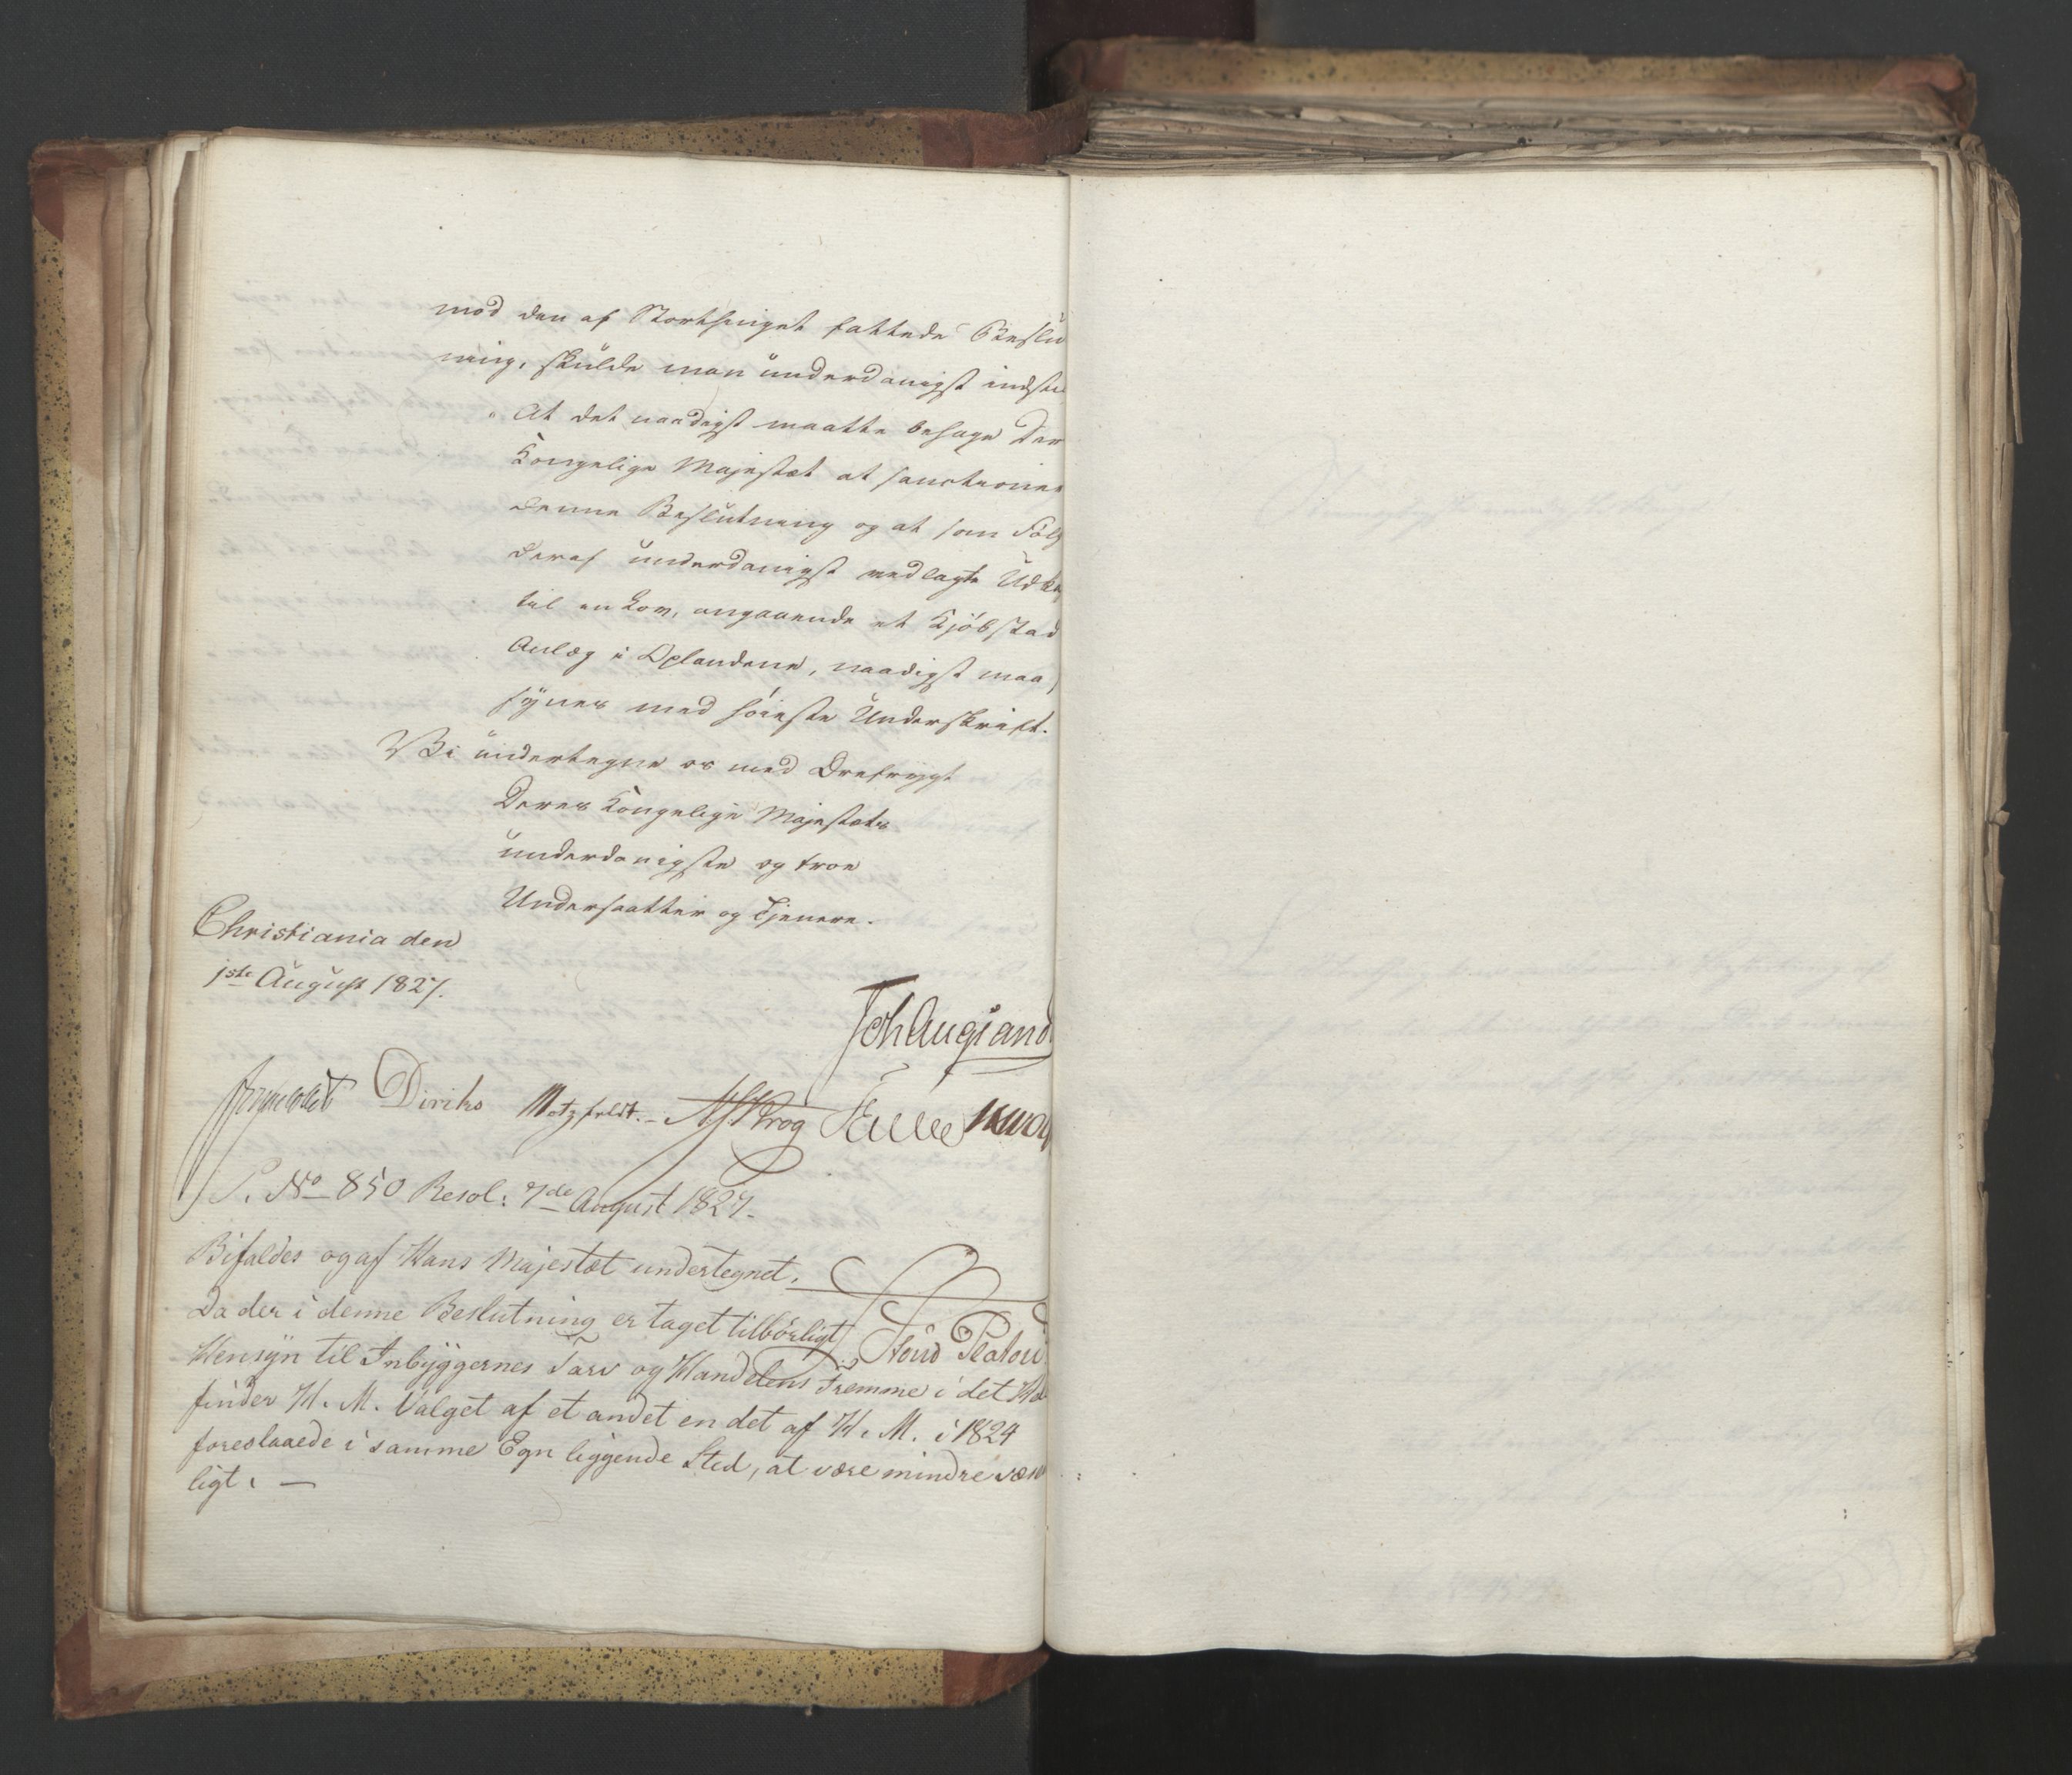 mod den af Storthinget fattede Beslu
ning, skulde man underdanigst indstil
"At det naadigst maatte behage Der
Kongelige Majestæt at sanctioner
denne Beslutning og at som Følg
deraf underdanigst vedlagte Udka
til en Lov, angaaende et Kjöbstad
Anlæg i Oplandene, naadigst maa
synes med höieste Underskrift.
Vi undertegne os med Ærefrygt
Deres Kongelige Majestæts
underdanigste og troe
Undersaatter og Tjenere.
Christiania den
1ste August 1827.
Joh Aug Sand
Diriks Motzfeldt. Krog
P. No 850 Resol: 7de August 1827.
Bifaldes og af Hans Majestæt undertegnet.
Da der i denne Beslutning er taget tilbörligt
Stoud Platou
Hensyn til Indbyggernes Tarv og Handelens Fremme i det He
finder H. M. Valget af et andet en det af H. M. i 1824
foreslaaede i samme Egn liggende Sted, at være mindre væsn
ligt. —